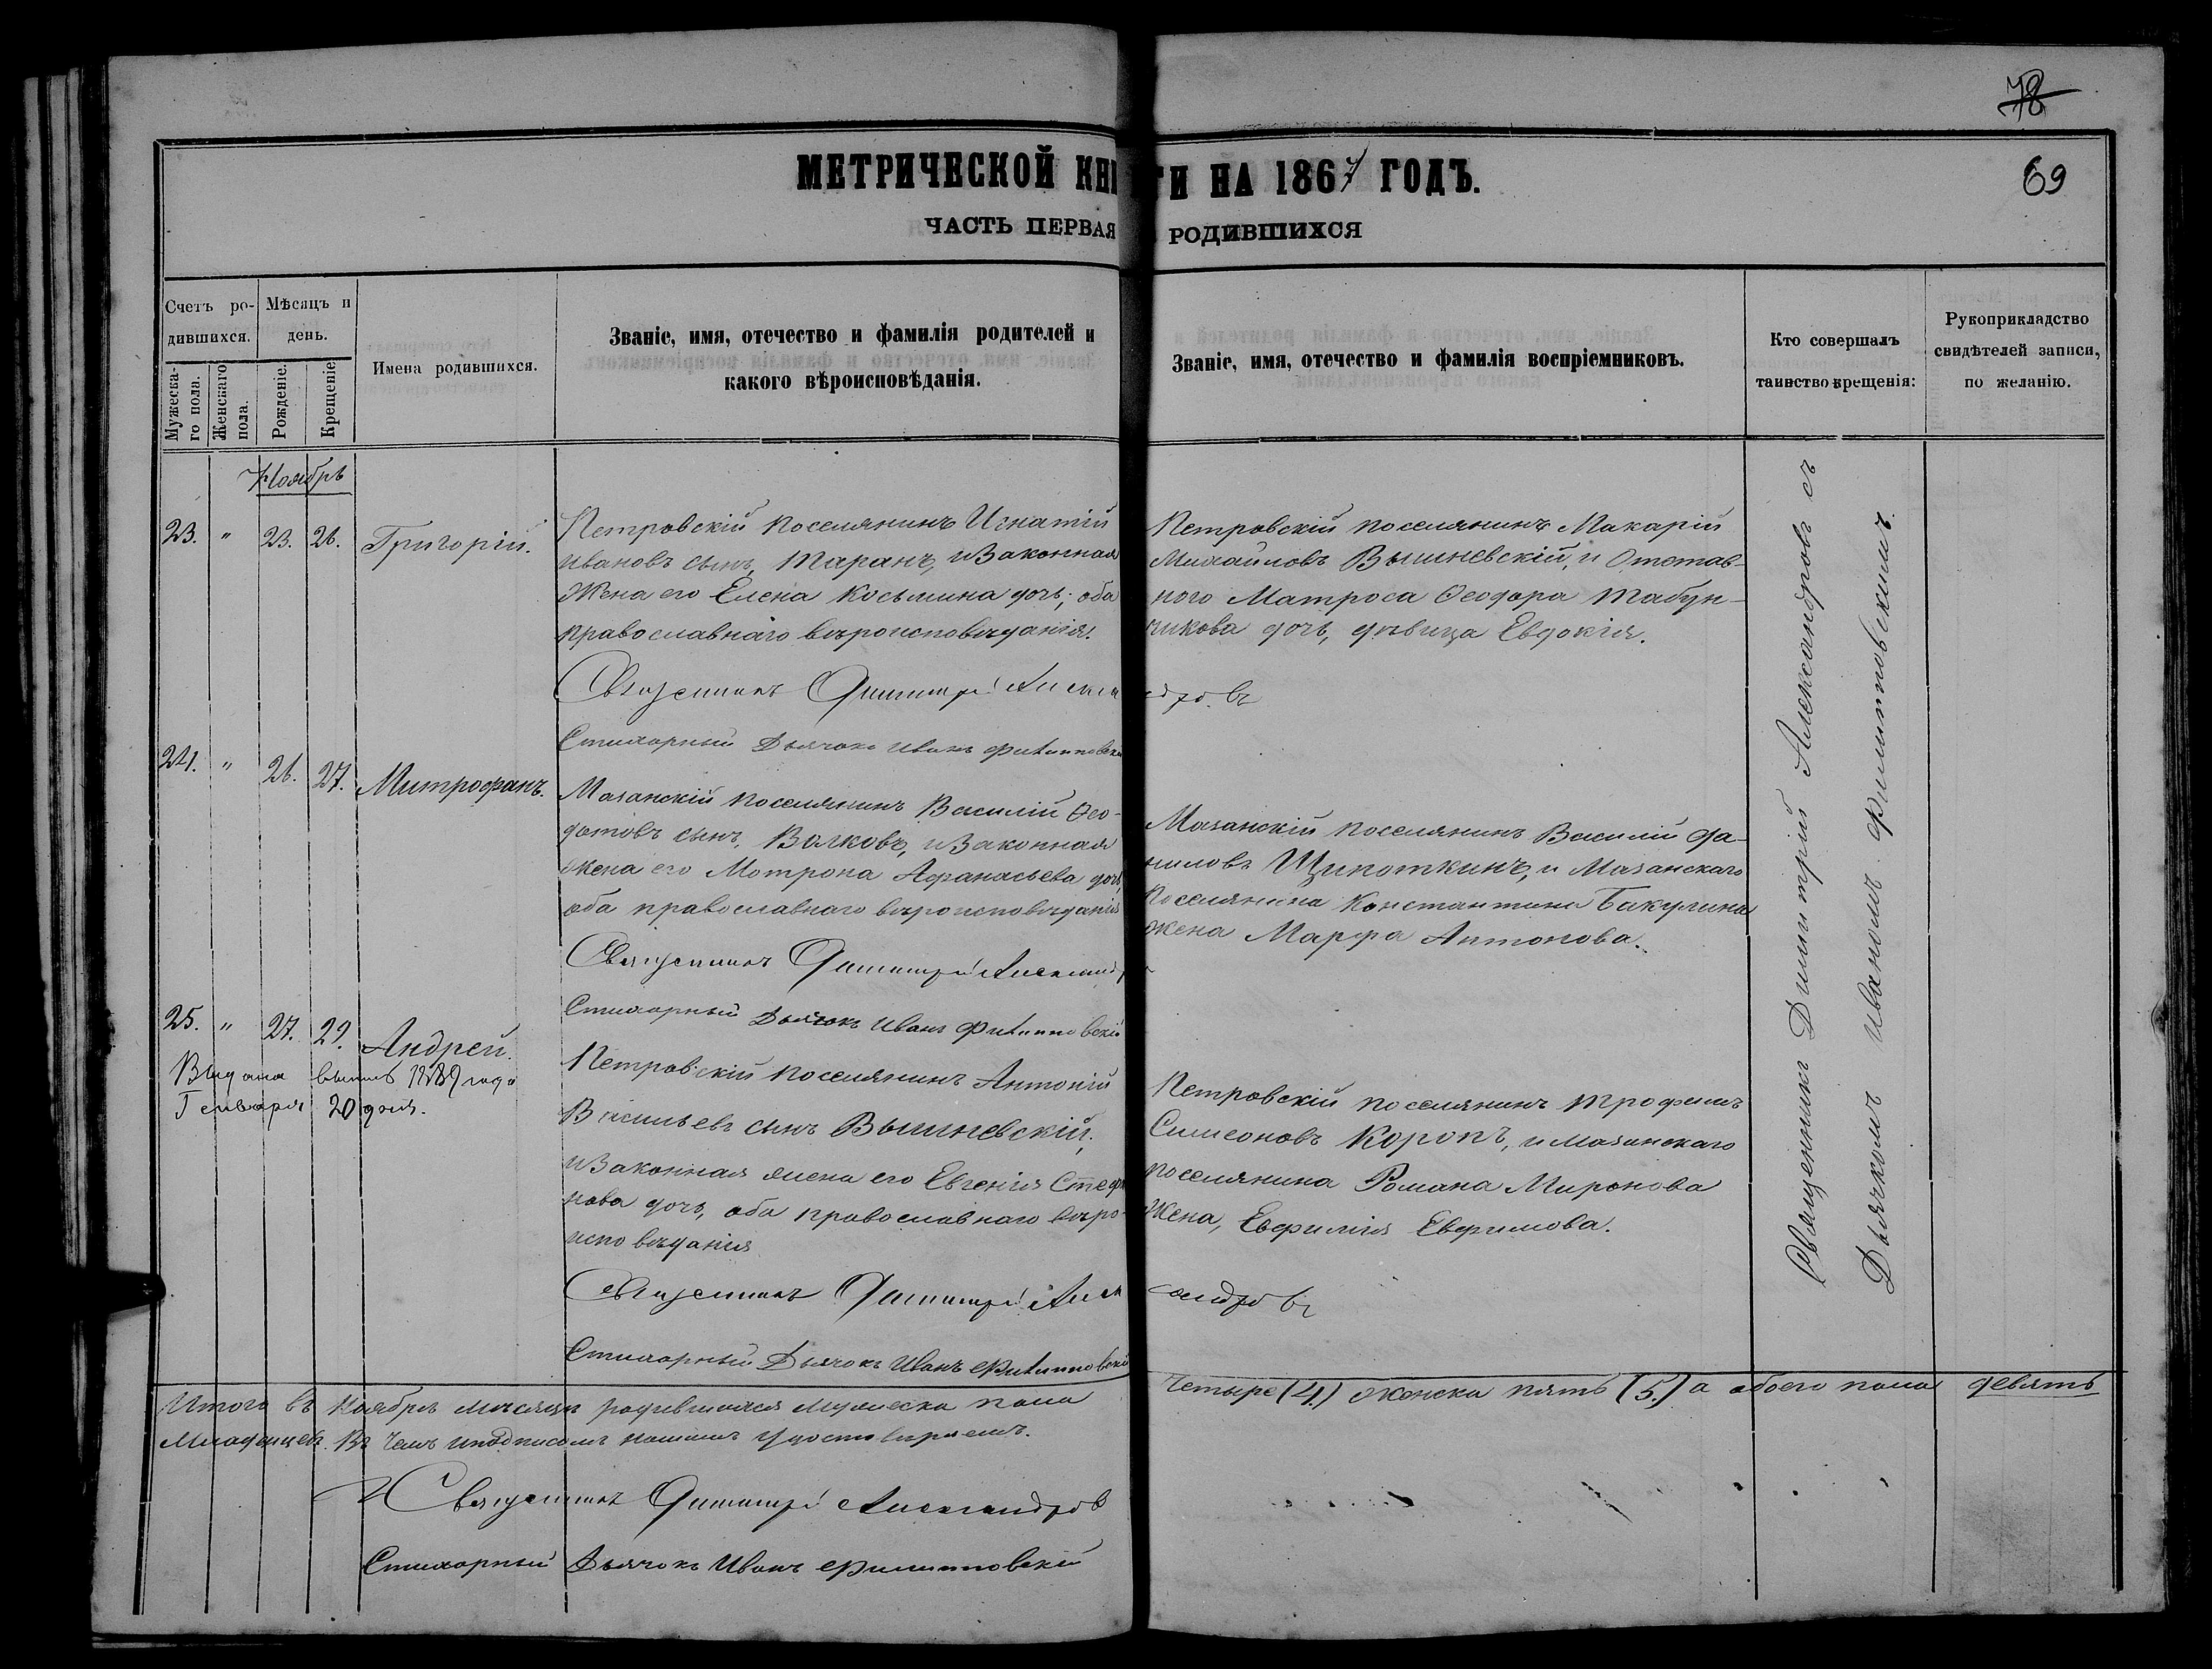 78
69
МЕТРИЧЕСКОЙ КНИ ГИ НА 1867 ГОДЪ.
ЧАСТЬ ПЕРВАЯ РОДИВШИХСЯ
Счетъ ро-
дившихся.
Мѣсяцъ и
день.
Мужеска-
го пола.
Женскаго
пола.
Рожденіе.
Крещеніе
Имена родившихся.
Званіе, имя, отечество и фамилія родителей и
какого вѣроисповѣданія.
Званіе, имя, отечество и фамилія воспріемниковъ.
Кто совершалъ
таинство крещенія:
Рукоприкладство
свидѣтелей записи,
по желанію.
Ноябрь
23. " 23. 26. Григорій.
Петровскій поселянинъ Игнатій
Ивановъ сынъ, Таранъ, и Законная
Жена его Елена Косьмина дочь; оба
православнаго вѣроисповѣданія.
Священникъ Димитрій Алекса
Стихарный Дьячокъ Иванъ Филипповскі
Петровскій поселянинъ Макарій
Михайловъ Вышневскій, и Отстав-
ного Матроса Ѳеодора Табун-
чикова дочь, дѣвица Евдокія.
ндровъ
24. " 26. 27. Митрофанъ.
Мазанскій поселянинъ Василій Ѳео-
дотовъ сынъ, Волковъ, и Законная
жена его Мотрона Афанасьева дочь,
оба православнаго вѣроисповѣданія
Священникъ Димитрій Александр
Стихарный Дьячокъ Иванъ Филипповскій
Мазанскій поселянинъ Василій Да-
ниловъ Щипоткинъ, и Мазанскаго
поселянина Константина Бакулина
жена Марфа Антонова.
25. " 27. 29. Андрей.
Выдана выпись 1889 года
Генваря 20 дня.
Петровскій поселянинъ Антоній
Васильевъ сынъ Вышневскій,
и Законная жена его Евгенія Стефа
нова дочь, оба православнаго вѣро-
исповѣданія
Священникъ Димитрій Алек
Стихарный Дьячокъ Иванъ Филипповскій
Петровскій поселянинъ Трофимъ
Симеоновъ Коропъ, и Мазанскаго
поселянина Романа Миронова
Жена, Евфимія Евфимова.
сандровъ
Священникъ Димитрій Александровъ съ
Дьячкомъ Иваномъ Филипповскимъ.
Итого въ Ноябрѣ мѣсяцѣ родившихся мужеска пола четыре (4.) женска пять (5.) а обоего пола девять
младенцевъ. Въ чемъ и подписомъ нашимъ удостовѣряемъ.
Священникъ Димитрій Александровъ
Стихарный Дьячокъ Иванъ Филипповскій